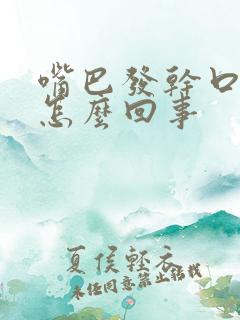 嘴巴發幹口
怎麼回事
夏侯輕衣
未经同意禁止转载